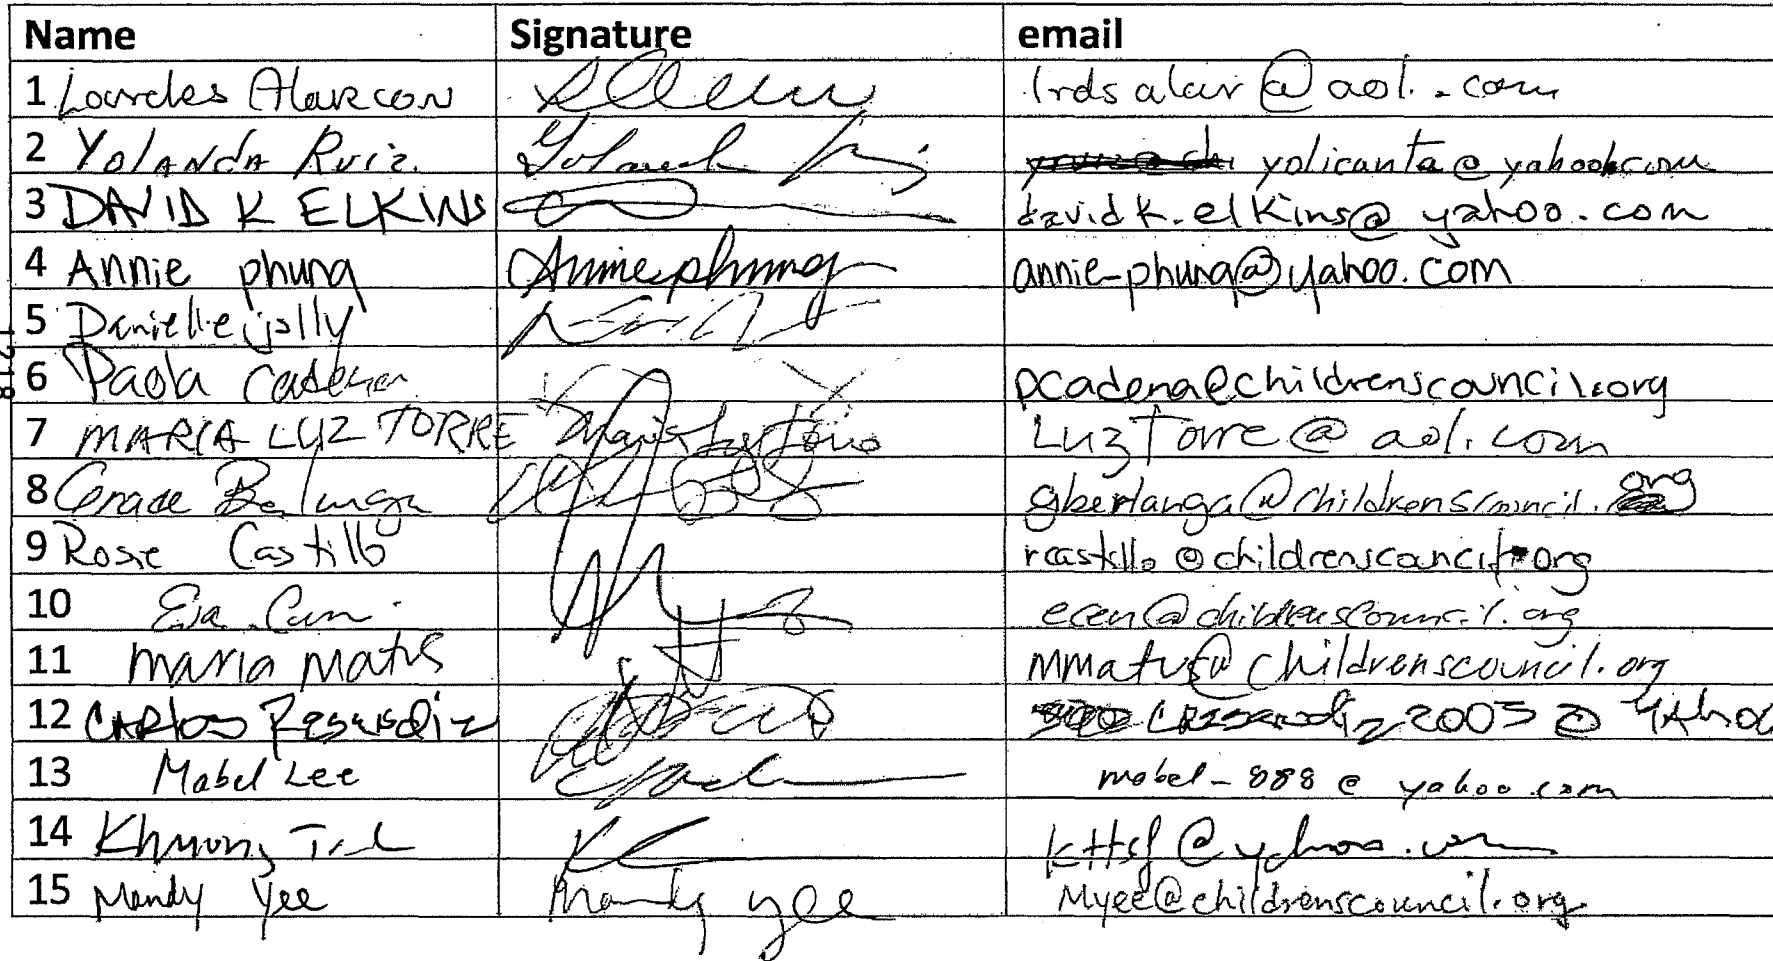 Name Signature email
1 Lourdes Alarcon lrdsalar@aol.com
2 Yolanda Ruiz. Yolanda yolicanta@yahoo.com
3 DAVID K ELKINS davidk.elkins@yahoo.com
4 Annie phung Annie phung annie-phung@yahoo.com
5 Danielle jolly
6 Paola Cadena pcadena@childrenscouncil.org
7 MARIA LUZ TORRE Maria Luz Torre LuzTorre@aol.com
8 Grace Berlanga gberlanga@childrenscouncil.org
9 Rosie Castillo rcastillo@childrenscouncil.org
10 Eva ecen@childrenscouncil.org
11 Maria Matus mmatus@childrenscouncil.org
12 CARlos Resendiz CResendiz2005@YAhoo
13 Mabel Lee mabel-888@yahoo.com
14 Khuong kttsf@yahoo.com
15 Mandy Yee Mandy yee Myee@childrenscouncil.org
1218